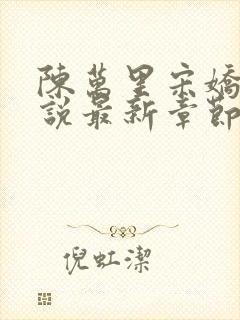 陳萬里宋嬌
說最新章節
倪虹潔